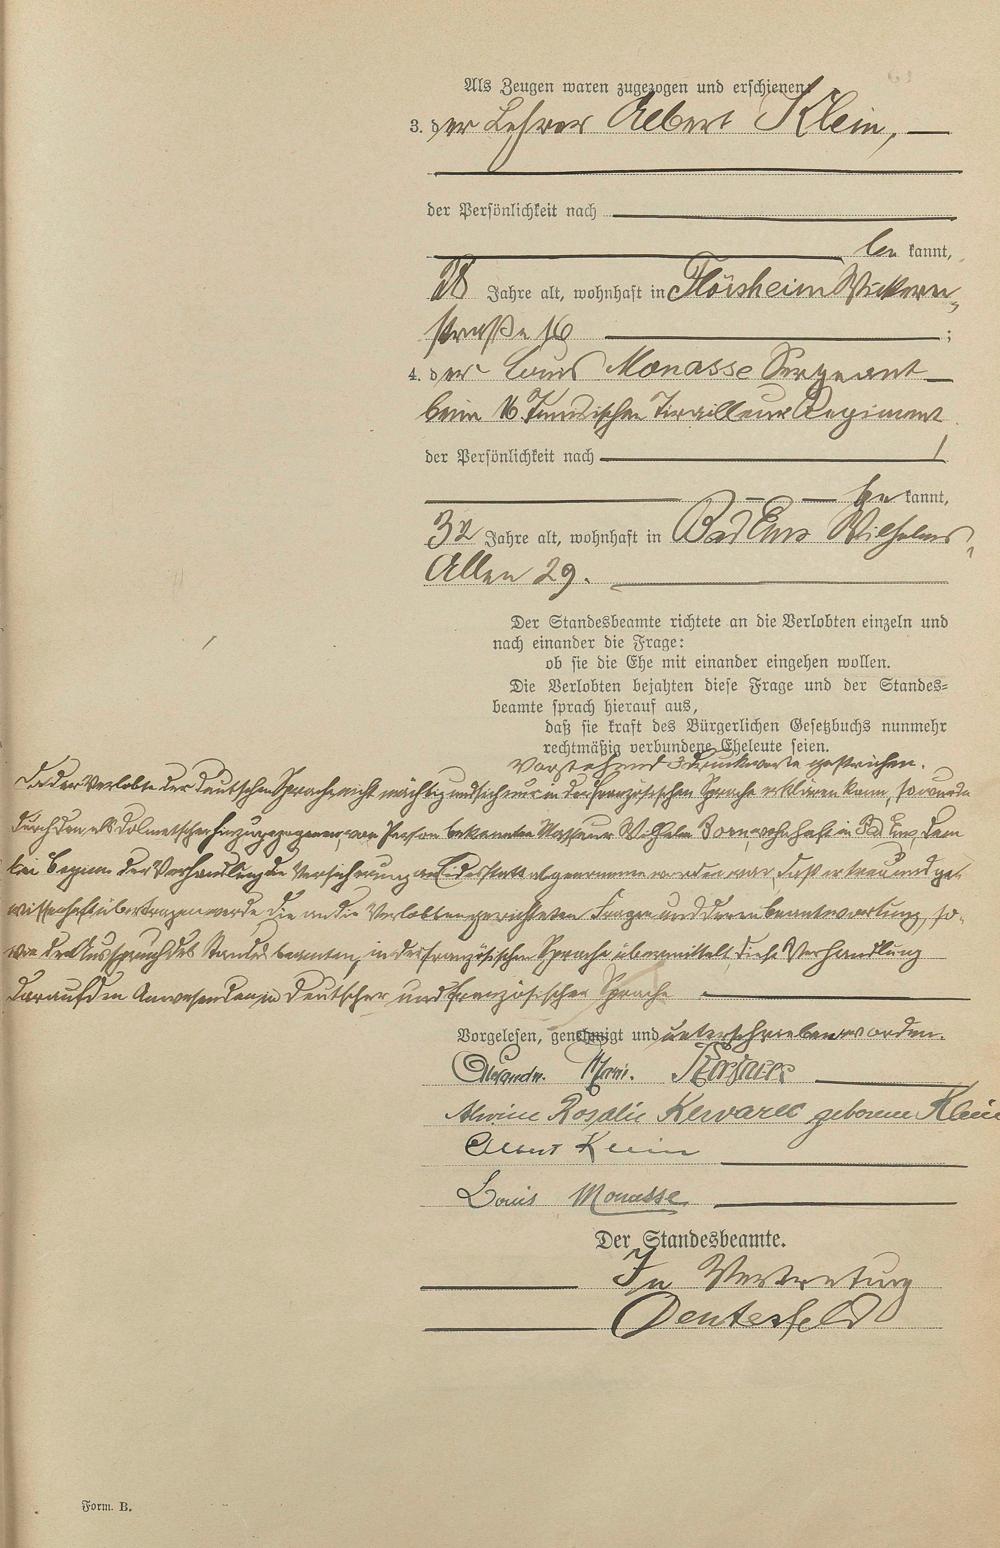 Als Zeugen waren zugezogen und erschienen:
3. der Lehrer Albert Klein,
der Persönlichkeit nach
be kannt,
28 Jahre alt, wohnhaft in Flörsheim Wickerer-
straße 16 ;
4. der Louis Monasse Sergeant
beim 16. Tunesischen Tirailleur Regiment
der Persönlichkeit nach
be kannt,
32 Jahre alt, wohnhaft in Bad Ems Wilhelms-
Allee 29.
Der Standesbeamte richtete an die Verlobten einzeln und
nach einander die Frage:
ob sie die Ehe mit einander eingehen wollen.
Die Verlobten bejahten diese Frage und der Standes-
beamte sprach hierauf aus,
daß sie kraft des Bürgerlichen Gesetzbuchs nunmehr
rechtmäßig verbundene Eheleute seien.
Vorstehend 3 Druckworte gestrichen.
Da der Verlobte der deutschen Sprache nicht mächtig und sich nur in der französischen Sprache erklären kann, so wurde
durch den als Dolmetscher hinzugezogenen, von Person bekannten Masseur Wilhelm Born, wohnhaft in Bad Ems, dem
bei Beginn der Verhandlung die Versicherung an Eidesstatt abgenommen worden war, daß er treu und ge-
wissenhaft übertragen werde die an die Verlobten gerichteten Fragen und deren Beantwortung, so-
wie den Ausspruch des Standesbeamten, in der französischen Sprache übermittelt, diese Verhandlung
darauf den Anwesenden in deutscher und französischer Sprache
Vorgelesen, genehmigt und unterschrieben worden.
Kervarec
Alwine Rosalie Kervarec geborene Klein
Albert Klein
Louis Monasse
Der Standesbeamte.
In Vertretung
Form. B.